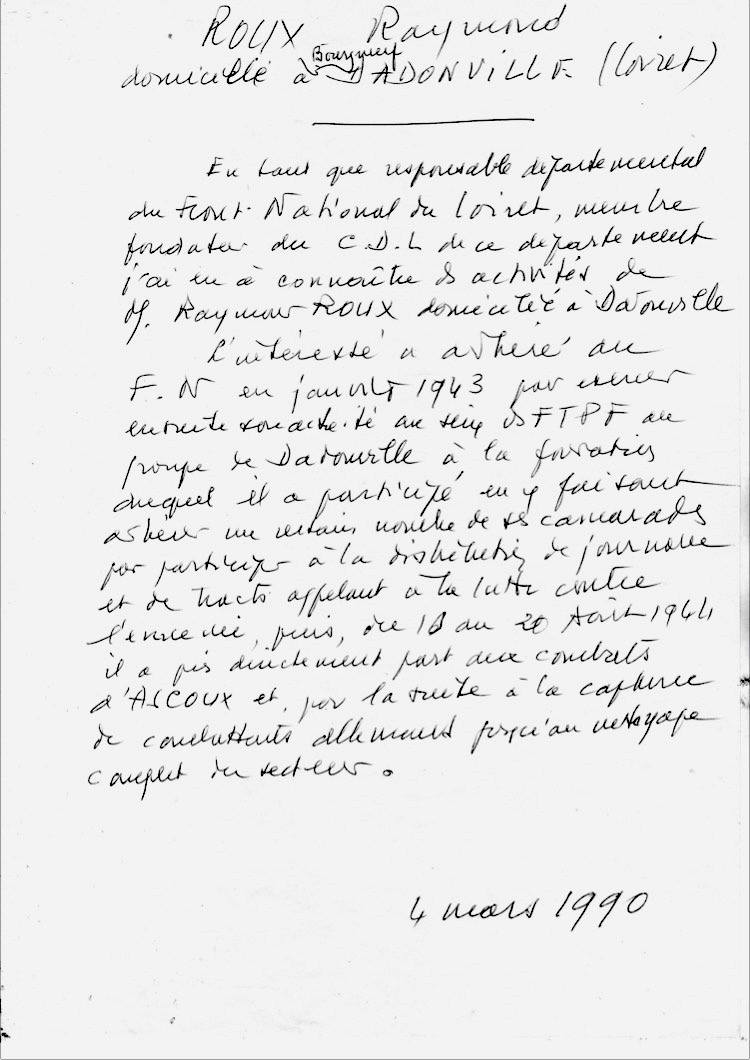 ROUX Raymond
Bourgneuf
domicilié à DADONVILLE (Loiret)
En tant que responsable départemental
du Front National du Loiret, membre
fondateur du C.D.L de ce département
j'ai eu à connaître des activités de
M. Raymond ROUX domicilié à Dadonville
L'intéressé a adhéré au
F.N en janvier 1943 pour exercer
ensuite son activité au sein des FTPF au
groupe de Dadonville à la formation
duquel il a participé en y faisant
adhérer un certain nombre de ses camarades
pour participer à la distribution de journaux
et de tracts appelant à la lutte contre
l'ennemi, puis, du au 20 Août 1944
il a pris directement part aux combats
d'ASCOUX et, par la suite à la capture
de combattants allemands jusqu'au nettoyage
complet du secteur.
4 mars 1990